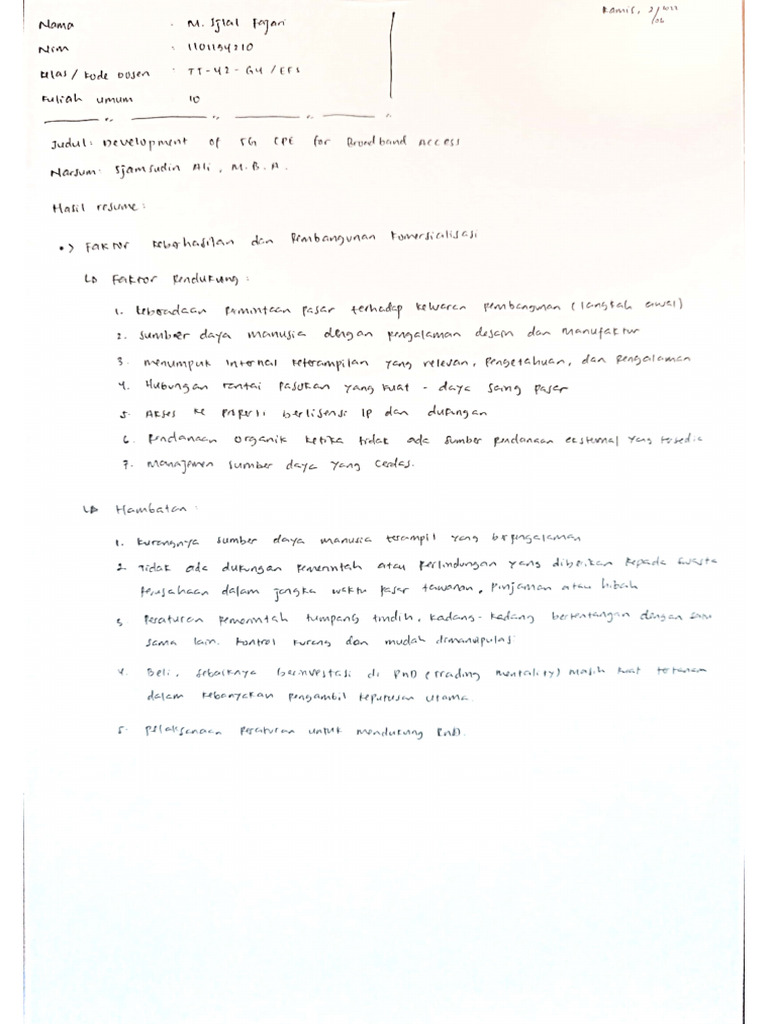 Kamis, 2/2022
06
Nama : M. Ijlal Fajari
Nim : 1101194210
Kelas / Kode Dosen : TT-42-G4 / EFS
Kuliah umum 10
Judul: Development of 5G CPE for Broadband Access
Narsum: Sjamsudin Ali, M.B.A.
Hasil resume:
•) Faktor Keberhasilan dan Pembangunan Komersialisasi
↳ Faktor Pendukung:
1. Keberadaan Permintaan pasar terhadap keluaran pembangunan (langkah awal)
2. Sumber daya manusia dengan pengalaman desain dan manufaktur
3. menumpuk internal keterampilan yang relevan, pengetahuan, dan pengalaman
4. Hubungan rantai pasukan yang kuat - daya saing pasar
5. Akses ke properti berlisensi IP dan dukungan
6. Pendanaan organik ketika tidak ada sumber pendanaan eksternal yang tersedia
7. Manajemen sumber daya yang cerdas.
↳ Hambatan:
1. Kurangnya sumber daya manusia terampil yang berpengalaman
2. Tidak ada dukungan pemerintah atau perlindungan yang diberikan kepada swasta
Perusahaan dalam jangka waktu pasar tawanan, Pinjaman atau hibah
3. Peraturan pemerintah tumpang tindih, kadang-kadang bertentangan dengan satu
sama lain. Kontrol kurang dan mudah dimanipulasi
4. Beli, sebaiknya berinvestasi di RnD (trading mentality) masih kuat tertanam
dalam kebanyakan pengambil keputusan utama.
5. Pelaksanaan peraturan untuk mendukung RnD.